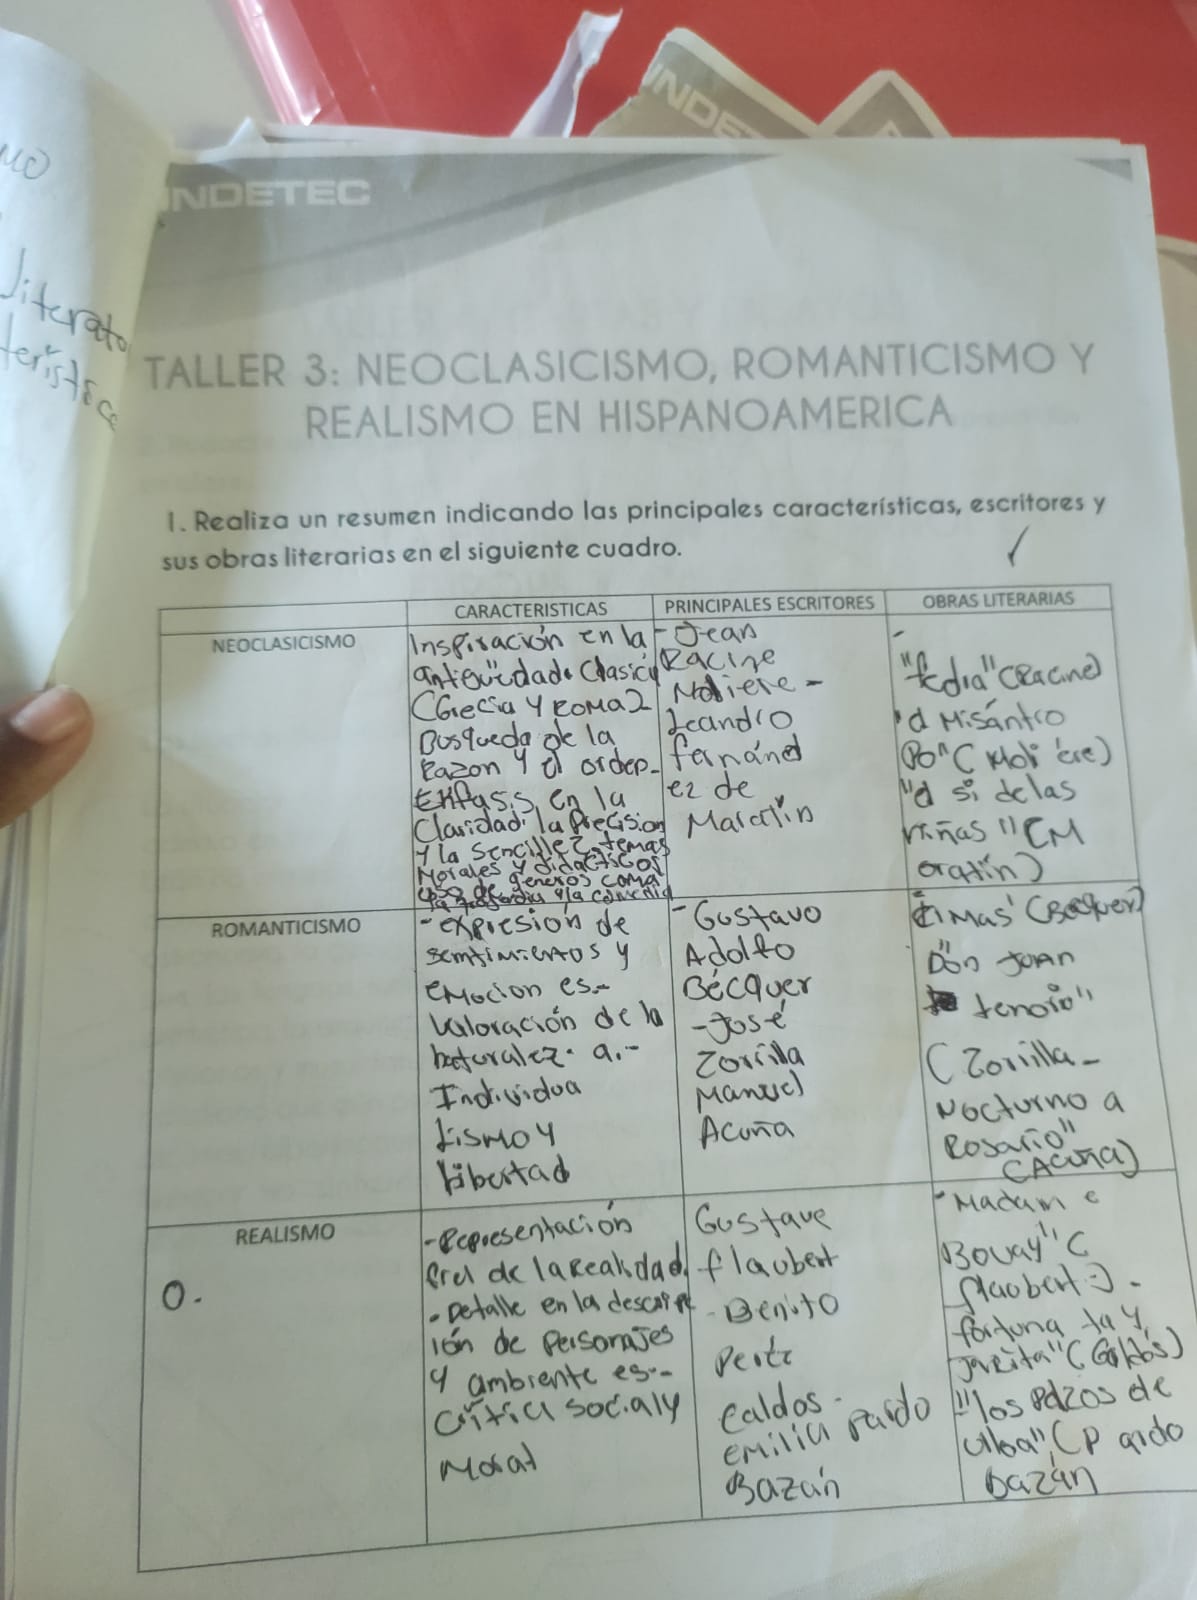 INDETEC
TALLER 3: NEOCLASICISMO, ROMANTICISMO Y
REALISMO EN HISPANOAMERICA
1. Realiza un resumen indicando las principales características, escritores y
sus obras literarias en el siguiente cuadro.
CARACTERISTICAS
PRINCIPALES ESCRITORES
OBRAS LITERARIAS
NEOCLASICISMO
Inspiración en la
antigüedad. Clasic
(Grecia y Roma)
Busqueda de la
Razon y el orden-
en la
Claridad, la Precision
y la sencillez. temas
Morales y didacticos
uso de generos como
la tragedia y la comedia
- Jean
Racine
Moliere -
Leandro
fernánd
ez de
-
"fedra" (Racine)
"el Misántro
Po" (Moli ère)
"el si de las
niñas" (M
oratín)
ROMANTICISMO
- expresión de
sentimientos y
emocion es.-
Valoración de la
naturalez. a.-
Individua
Lismo y
libertad
- Gustavo
Adolfo
Bécquer
- José
Zorrilla
Manuel
Acuña
Rimas" (Bécquer)
"Don Juan
tenorio"
(Zorrilla -
Nocturno a
Rosario"
(Acuña)
REALISMO
O.
- Representación
fiel de la Realidad.
- Detalle en la descrip
ión de Personajes
y ambiente es.-
Crítica social y
Moral
Gustave
flaubert
- Benito
Galdos -
emilia Pardo
Bazán
- Madam e
Bovay" (
flaubert) -
fortuna ta y
Jacita" (Galdós)
- "los pazos de
Ulloa", (P ardo
Bazán